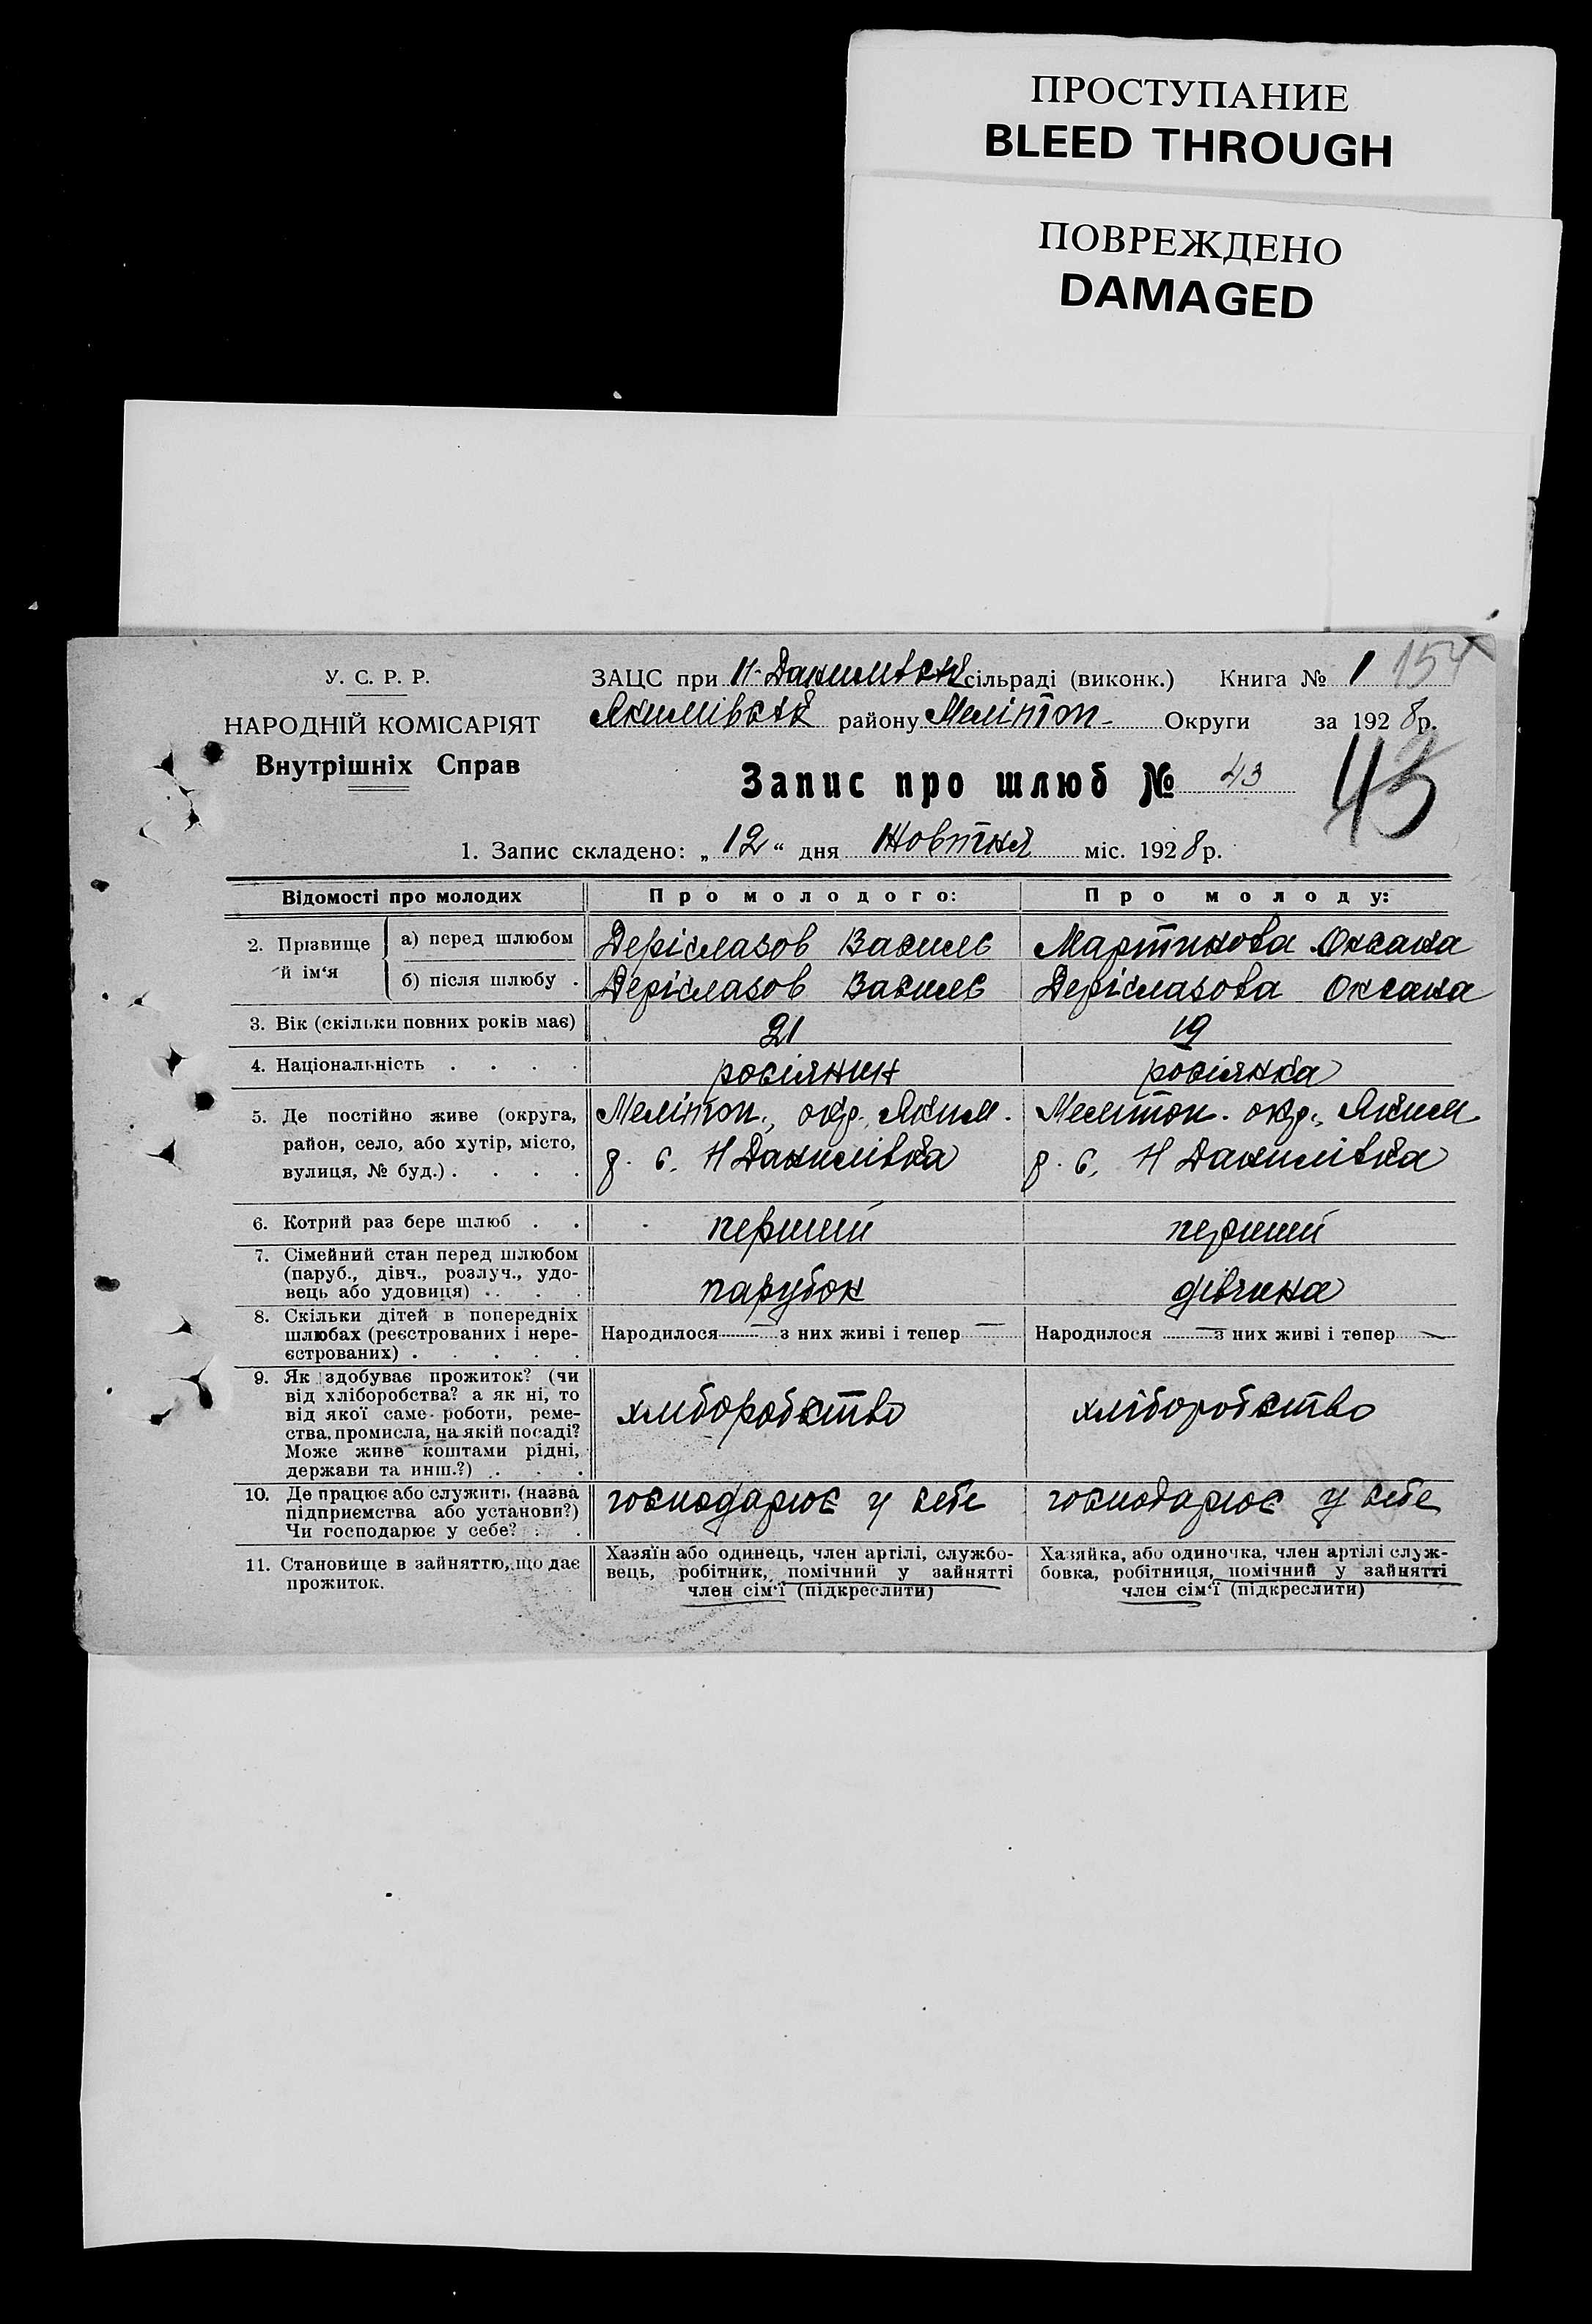 ПРОСТУПАНИЕ
BLEED THROUGH
ПОВРЕЖДЕНО
DAMAGED
У. С. Р. Р.
НАРОДНІЙ КОМІСАРІЯТ
Внутрішніх Справ
ЗАЦС при Н-Данилівскій сільраді (виконк.) Книга № 1 154
Якимівскій району Меліտոп- Округи за 1928р.
Запис про шлюб № 43 43
1. Запис складено: „12“ дня Жовтня міс. 1928р.
Відомості про молодих Про молодого: Про молоду:
2. Прізвище й ім‘я
а) перед шлюбом Деріглазов Василє Мартинова Оксана
б) після шлюбу . Деріглазов Василє Деріглазова Оксана
3. Вік (скільки повних років має) 21 19
4. Національність . . . . росіянин росіянка
5. Де постійно живе (округа, Меліտոп., окр., Яким. Мелітоп. окр., Яким.
район, село, або хутір, місто, р. с. Н Данилівка р. с. Н Данилівка
вулиця, № буд.) . . . .
6. Котрий раз бере шлюб . . перший перший
7. Сімейний стан перед шлюбом
(паруб., дівч., розлуч., удо-
вець або удовиця) . . . . парубок дівчина
8. Скільки дітей в попередніх
шлюбах (реєстрованих і нере- Народилося — з них живі і тепер — Народилося — з них живі і тепер —
єстрованих) . . . . .
9. Як здобуває прожиток? (чи
від хліборобства? а як ні, то
від якої саме роботи, реме- хліборобство хліборобство
ства, промисла, на якій посаді?
Може живе коштами рідні,
держави та инш.?) . . .
10. Де працює або служить (назва господарює у себе господарює у себе
підприємства або установи?)
Чи господарює у себе? . .
11. Становище в зайняттю, що дає Хазяїн або одинець, член артілі, службо- Хазяйка, або одиночка, член артілі служ-
прожиток. вець, робітник, помічний у зайнятті бовка, робітниця, помічний у зайнятті
член сім‘ї (підкреслити) член сім‘ї (підкреслити)